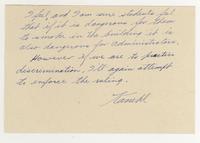 I feel, and I am sure students feel
that if it is dangerous for them
to smoke in the building it is
also dangerous for administrators.
However if we are to practice
discrimination, I'll again attempt
to enforce the ruling.